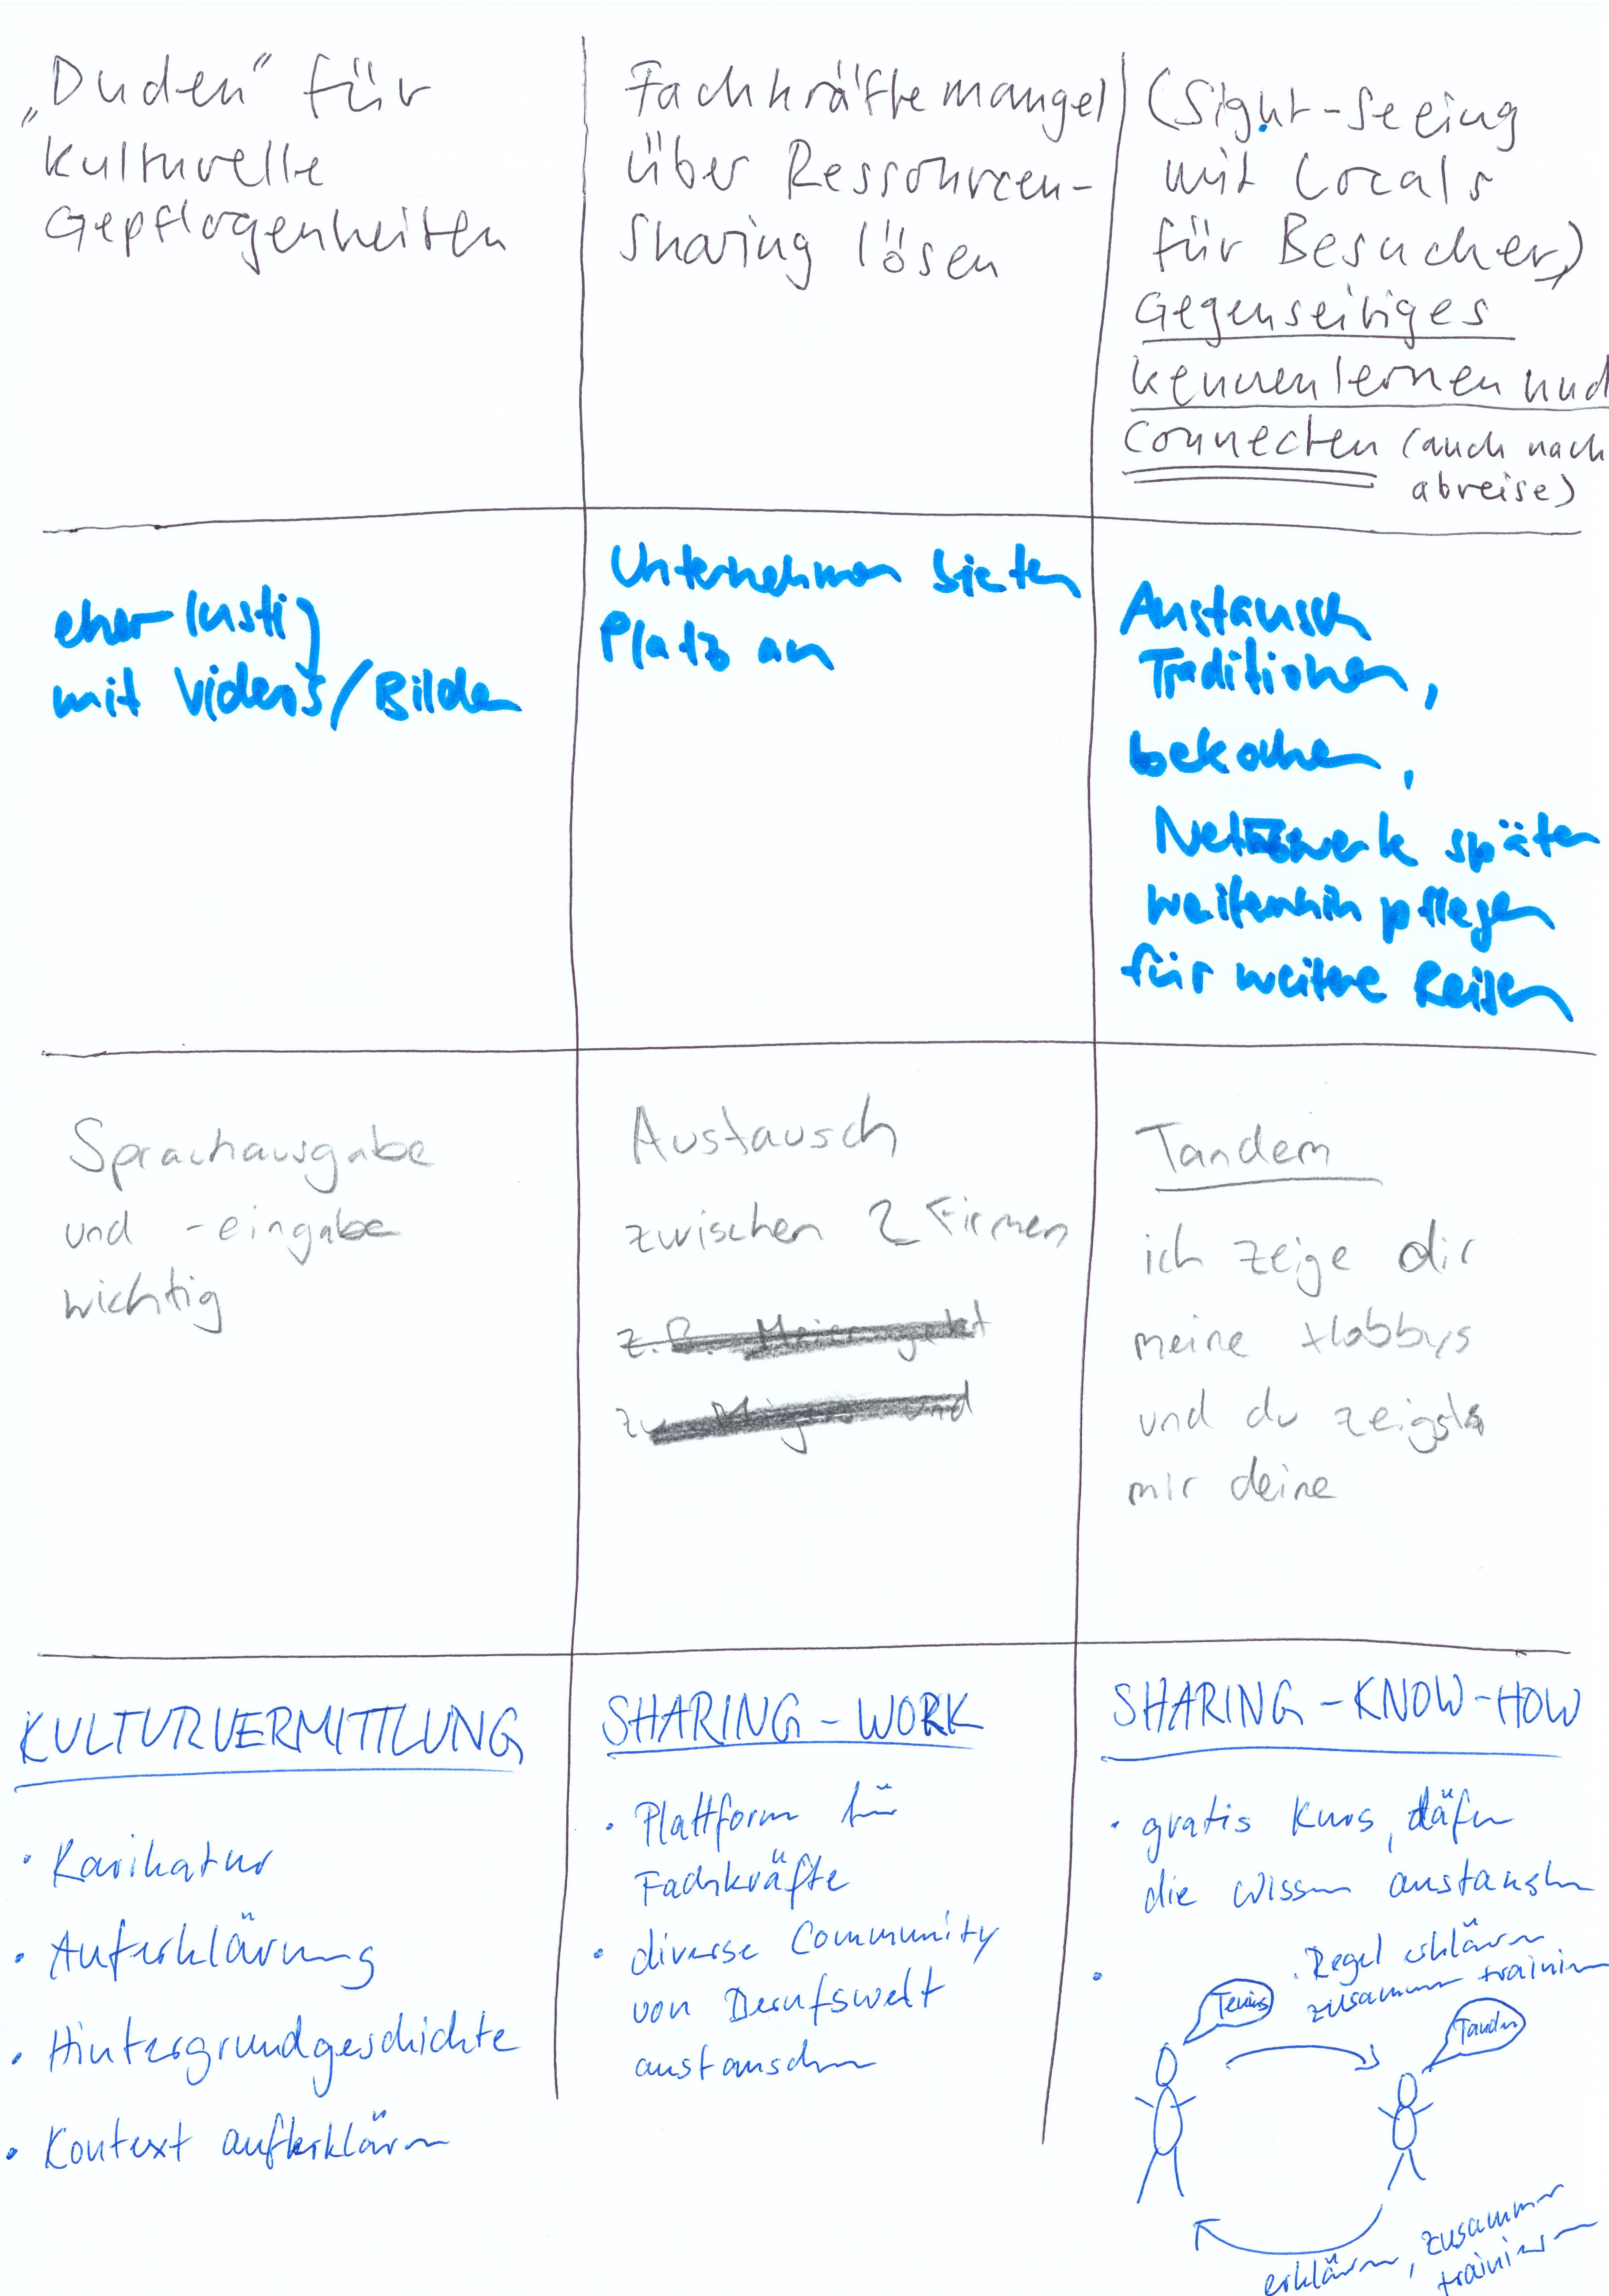 „Duden" für
kulturelle
Gepflogenheiten
Fachkräftemangel
über Ressourcen-
Sharing lösen
(Sight-Seeing
mit Locals
für Besucher)
Gegenseitiges
kennenlernen und
Connecten (auch nach
abreise)
eher lustig
mit Videos/Bilder
Unternehmen bieten
Platz an
Austausch
Traditionen,
bekochen,
Netzwerk später
weiterhin pflegen
für weitere Reisen
Sprachausgabe
und -eingabe
wichtig
Austausch
zwischen 2 Firmen
z.B.
zu und
Tandem
ich zeige dir
meine Hobbys
und du zeigst
mir deine
KULTURVERMITTLUNG
• Karikatur
• Auferklärung
• Hintergrundgeschichte
• Kontext auferklären
SHARING - WORK
• Plattform für
Fachkräfte
• diverse Community
von Berufswelt
austauschen
SHARING - KNOW-HOW
• gratis Kurs, dafür
die Wissen austauschen
• Regel erklären
zusammen trainieren
Tennis
Tauchen
erklären, zusammen
trainieren